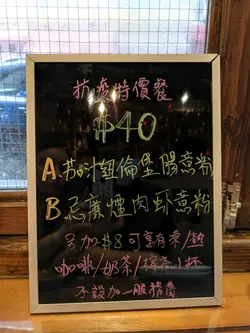 抗疫特價餐
$40
A 茄汁紐倫堡腸意粉
B 忌廉煙肉虾意粉
另加$8可享有凍/熱
咖啡/奶茶/檸茶小杯
不設加一服務費